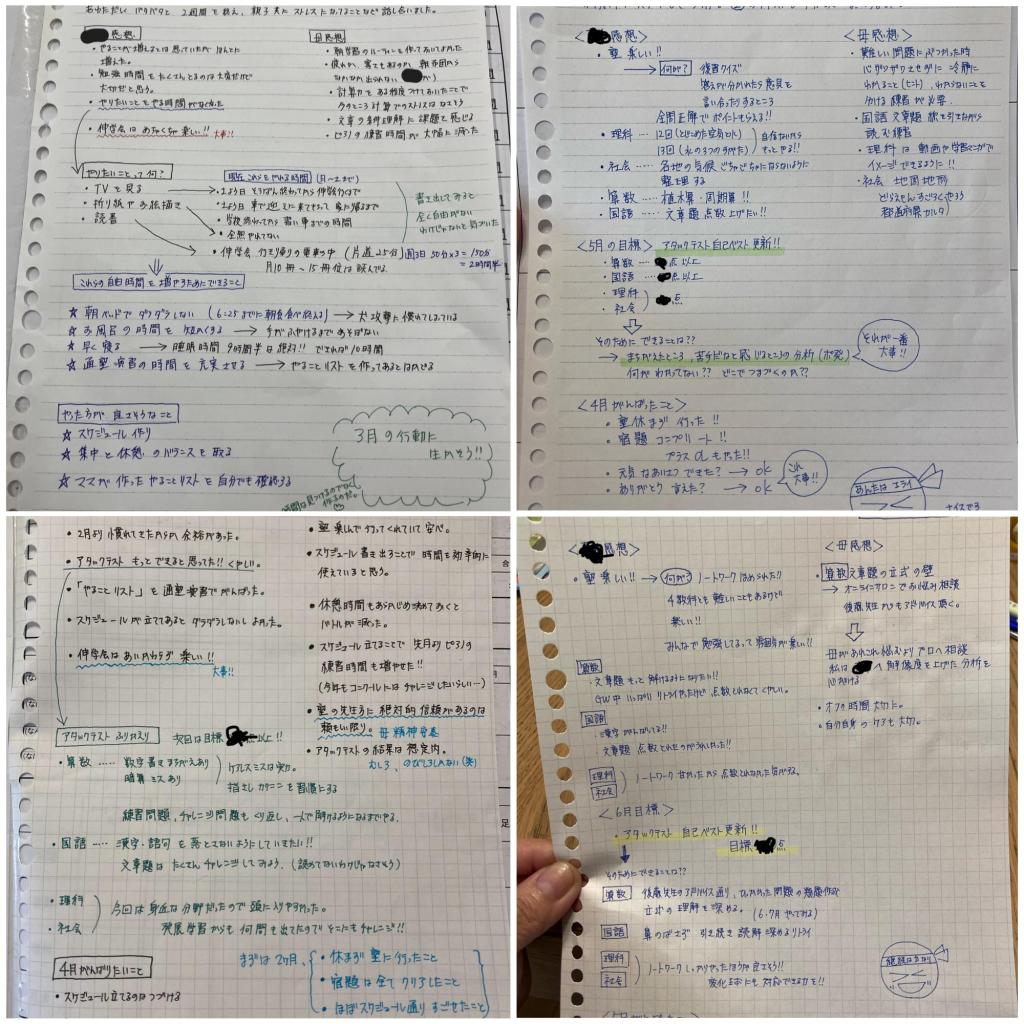 あわただしい バタバタと 2週間を終え、親子共にストレスになってることなど話し合いました。
感想
・やることが増えるとは思っていたがほんとに
増えた。
・勉強時間をたくさんとるのは大変だけど
大切だと思う。
・やりたいことをやる時間がなくなった
・伸学会は めちゃくちゃ楽しい!! 大事!!
母感想
・朝学習のルーティーンを作っておいてよかった
・計算力をある程度つけておいたことで
今のところ計算でのストレスはなさそう
・文章の条件理解に課題を感じる
・ピアノの練習時間が大幅に減った
やりたいことって何?
・TVを見る
・折り紙やお絵描き
・読書
現在これらをやれる時間 (月〜土まで)
・土よう日 そろばん終わってから伸学会行くまで
・土よう日 車で迎えに来てもらって 家に帰るまで
・学校終わってから 習い事までの時間
・全然やれてない
・伸学会 行き帰りの電車の中 (片道25分) 週3日 50分×3=150分
=2時間半
月10冊〜15冊位は読んでる。
書き出してみると
全く自由がない
わけじゃないと気づいた
これらの自由時間を増やすためにできること
☆ 朝ベッドでダラダラしない (6:25までに朝食食べ終える) → 犬攻撃に慣れてしまっている
☆ お風呂の時間を短くする → 手がふやけるまであそばない
☆ 早く寝る → 睡眠時間 9時間半は絶対!! できれば10時間
☆ 通塾演習の時間を充実させる → やることリストを作ってあるとはかどる
やった方が良さそうなこと
☆ スケジュール作り
☆ 集中と休憩のバランスを取る
☆ ママが作ったやることリストを自分でも確認する
3月の行動に
生かそう!!
時間は見つけるのでなく
作るのだ。
< 感想>
・塾 楽しい!!
→ 何が? 復習クイズ
答えが分かれたら意見を
言い合ったりするところ
全問正解でポイントもらえる!!
・理科 … 12回
13回
自信ないから
もっとやる!!
・社会 … 各地の気候ごちゃごちゃにならないように
整理する
・算数 … 植木算・周期算!!
・国語 … 文章題 点数上げたい!!
<母感想>
・難しい問題にぶつかった時
心がザワザワさせずに冷静に
わかること(ヒント)、わからないことを
分ける練習が必要。
・国語 文章題 線を引きながら
読む練習
・理科は 動画や学習マンガで
イメージできるように!!
・社会 地図 地形
どらえもんすごろくやろう
都道府県カルタ
<5月の目標> アタックテスト自己ベスト更新!!
・算数 … 点以上
・国語 … 点以上
・理科
・社会
点
そのためにできることは??
→ まちがえたところ、苦手だなと感じるところの分析(ホ発)
何がわかってない?? どこでつまづくのか??
それが一番
大事!!
<4月がんばったこと>
・塾休まず行った!!
・宿題コンプリート!!
プラスαもやった!!
・元気なあいさつできた? → OK
・ありがとう言えた? → OK
これ
大事!!
あんたはエライ
・2月より慣れてきたからか 余裕があった。
・アタックテスト もっとできると思った!! くやしい。
・「やることリスト」を通塾演習でがんばった。
・スケジュールが立てあるとダラダラしないしよかった。
・伸学会はあいかわらず 楽しい!!
大事!!
・塾楽しんで行ってくれていて安心。
・スケジュール書き出すことで時間を効率的に
使えていると思う。
・休憩時間もあらかじめ決めておくと
バトルが減った。
・スケジュール立てることで 先月よりピアノの
練習時間も増やせた!!
(今年もコンクールにはチャレンジしたいらしい…)
・塾の先生方に絶対的信頼があるのは
頼もしい限り。 母 精神安泰
・アタックテストの結果は想定内。
むしろ、のびしろしかない(笑)
アタックテスト ふりかえり 次回は目標 以上!!
・算数 …… 数字書きまちがえあり
暗算ミスあり
ケアレスミスは実力。
指さしカクニンを習慣にする
練習問題、チャレンジ問題もくり返し、一人で解けるようになるまでやる。
・国語 …… 漢字・語句を落とさないようにしていきたい!!
文章題はたくさんチャレンジしてみよう。(読めてないわけじゃなさそう)
・理科
・社会
今回は身近な分野だったので頭に入りやすかった。
発展学習からも何問も出てたのでそこにもチャレンジ!!
4月がんばりたいこと
・スケジュール立てるのはつづける
まずは2ヶ月、
・休まず塾に行ったこと
・宿題は全てクリアしたこと
・ほぼスケジュール通りすごせたこと
< 感想>
・塾 楽しい!! → 何が? ノートワークほめられた!!
4教科とも難しいこともあるけど
楽しい!!
みんなで勉強してるって雰囲気が楽しい!!
算数
・文章題もっと解けるようになりたい!!
GW中 いっぱいリトライやったけど 点数とれなくてくやしい。
国語
・漢字がんばってる!!
・文章題 点数とれたのがうれしかった!!
理科
社会
ノートワーク 甘かったから 点数とれなかった気がする。
<母感想>
・算数 文章題の立式の壁
→ オンラインサロンでお悩み相談
後藤先生からもアドバイス頂く。
母があれこれ悩むよりプロへ相談
私は へ解像度を上げた分析を
心がける
・オフの時間大切に。
・自分自身のケアも大切。
<6月目標>
・アタックテスト 自己ベスト更新!!
目標 点
そのためにできることは??
算数 後藤先生のアドバイス通り、ひっかかった問題の類題作成
立式の理解を深める。(6・7月やってみる)
国語 鼻のばさず 引き続き 読解 深めるリトライ
理科
社会
ノートワークしっかりやったほうが良さそう!!
変化球にも対応できる力を!!
継続は力なり